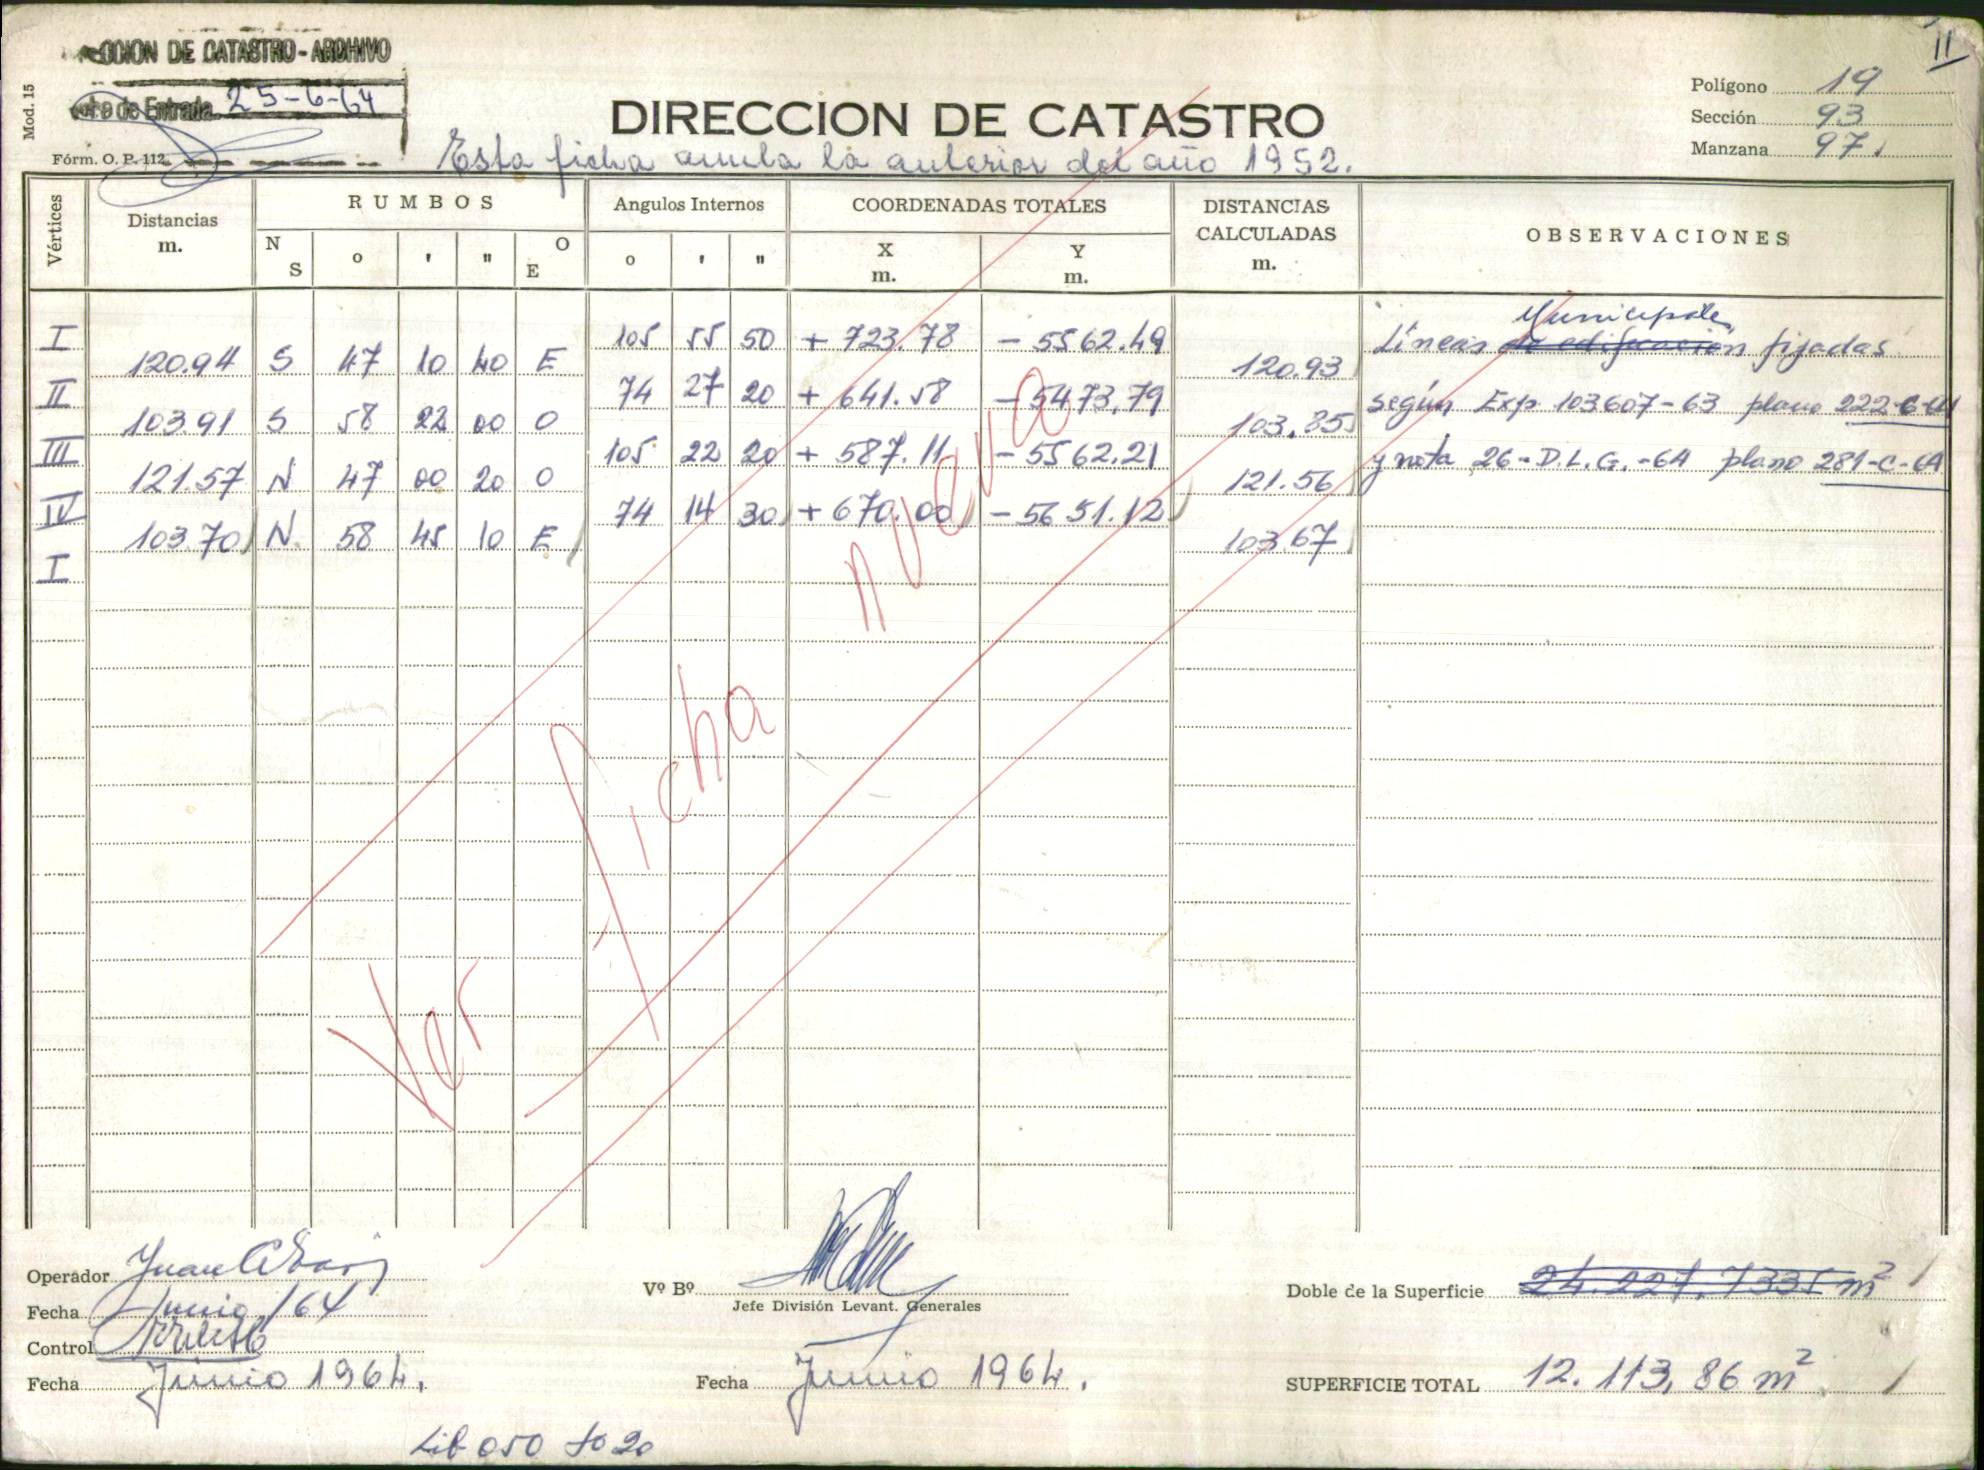 II
CCION DE CATASTRO - ARCHIVO
de Entrada 25-6-64
Mod. 15
Fórm. O. P. 112
DIRECCION DE CATASTRO
Esta ficha anula la anterior del año 1952.
Polígono 19
Sección 93
Manzana 97.
Vértices Distancias m. RUMBOS N S o ' " O E Angulos Internos o ' " COORDENADAS TOTALES X m. Y m. DISTANCIAS CALCULADAS m. OBSERVACIONES
Municipales
I 105 55 50 + 723.78 - 5562.49 Líneas de edificación fijadas
120.94 S 47 10 40 E 120.93
II 74 27 20 + 641.58 - 5473,79 según Exp 103607-63 plano 222-C-64
103.91 S 58 22 00 O 103.85
III 105 22 20 + 587.11 - 5562.21 y nota 26-D.L.G.-64 plano 281-C-64
121.57 N 47 00 20 O 121.56
IV 74 14 30 + 670.00 - 5651.12
103.70 N 58 45 10 E 103.67
I
Ver ficha nueva
Operador Juan
Fecha Junio/64
Control
Fecha Junio 1964.
Vº Bº
Jefe División Levant. Generales
Fecha Junio 1964.
Doble de la Superficie 24.227,7335 m²
SUPERFICIE TOTAL 12.113,86 m²
Lib 050 fo 20